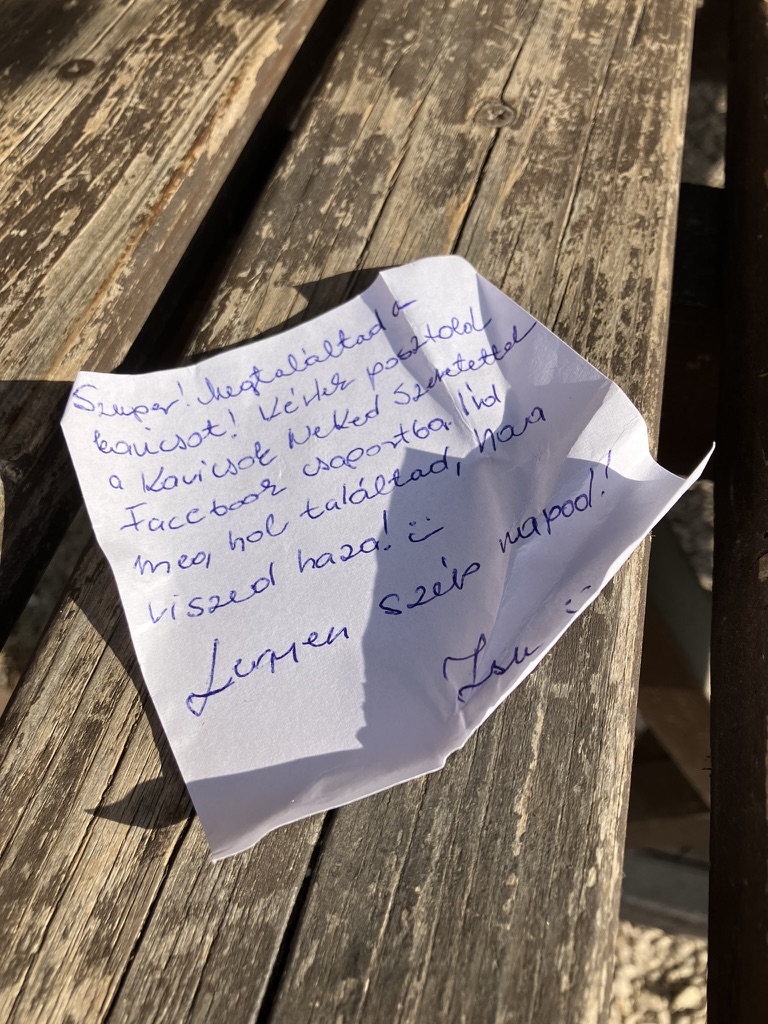 Szuper! Megtaláltad a
kavicsot! Kérlek posztold
a Kavicsok Neked Szeretettel
Facebook csoportba. Írd
meg, hol találtad, hova
viszed haza! :)
Legyen szép napod!
Zsu :)